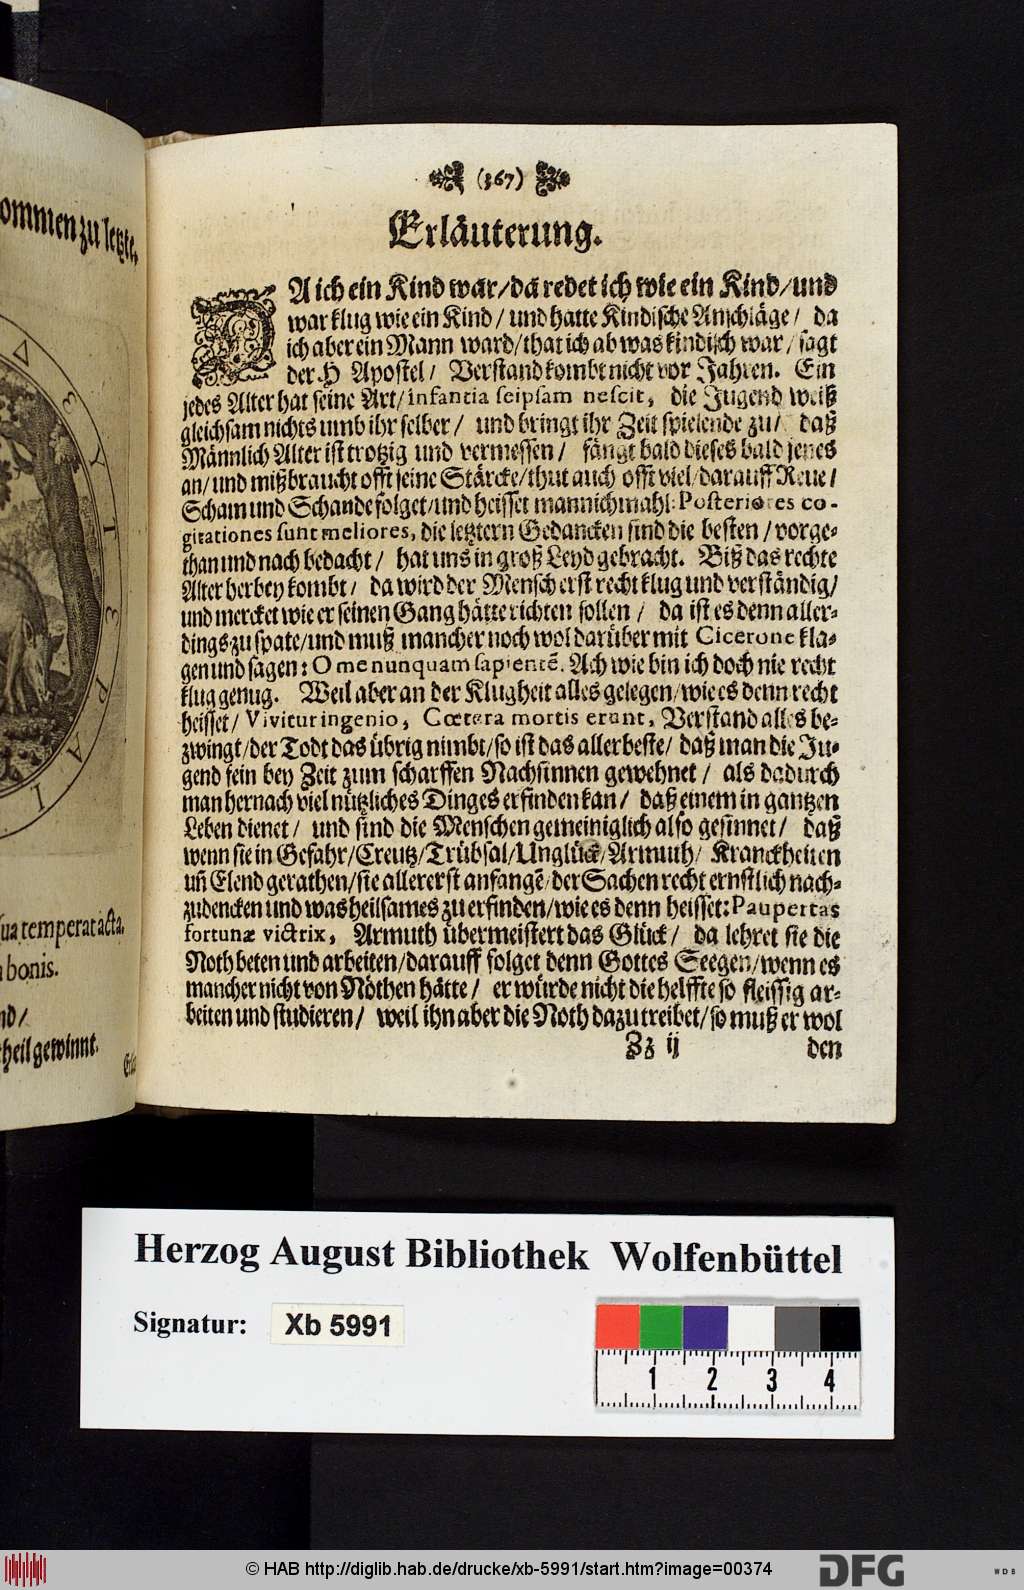 ommen zu letzte,
(367)
Erläuterung.
DA ich ein Kind war/ da redet ich wie ein Kind/ und
war klug wie ein Kind/ und hatte Kindische Anschläge/ da
ich aber ein Mann ward/ that ich ab was kindisch war/ sagt
der H Apostel/ Verstand kombt nicht vor Jahren. Ein
jedes Alter hat seine Art/ infantia seipsam nescit, die Jugend weiß
gleichsam nichts umb ihr selber/ und bringt ihr Zeit spielende zu/ daß
Männlich Alter ist trotzig und vermessen/ fängt bald dieses bald jenes
an/ und mißbraucht offt seine Stärcke/ thut auch offt viel/ darauff Reue/
Scham und Schande folget/ und heisset mannichmahl: Posteriores co-
gitationes sunt meliores, die letztern Gedancken sind die besten/ vorge-
than und nach bedacht/ hat uns in groß Leyd gebracht. Biß das rechte
Alter herbey kombt/ da wird der Mensch erst recht klug und verständig/
und mercket wie er seinen Gang hätte richten sollen/ da ist es denn aller-
dings zu spate/ und muß mancher noch wol darüber mit Cicerone kla-
gen und sagen: O me nunquam sapientē. Ach wie bin ich doch nie recht
klug genug. Weil aber an der Klugheit alles gelegen/ wie es denn recht
heisset/ Vivitur ingenio, Cœtera mortis erunt, Verstand alles be-
zwingt/ der Todt das übrig nimbt/ so ist das allerbeste/ daß man die Ju-
gend fein bey Zeit zum scharffen Nachsinnen gewehnet/ als dadurch
man hernach viel nützliches Dinges erfinden kan/ daß einem in gantzen
Leben dienet/ und sind die Menschen gemeiniglich also gesinnet/ daß
wenn sie in Gefahr/ Creutz/ Trübsal/ Unglück/ Armuth/ Kranckheiten
uñ Elend gerathen/ sie allererst anfangē/ der Sachen recht ernstlich nach-
zudencken und was heilsames zu erfinden/ wie es denn heisset: Paupertas
fortunæ victrix, Armuth übermeistert das Glück/ da lehret sie die
Noth beten und arbeiten/ darauff folget denn Gottes Seegen/ wenn es
mancher nicht von Nöthen hätte/ er würde nicht die helffte so fleissig ar-
beiten und studieren/ weil ihn aber die Noth dazu treibet/ so muß er wol
Zz ij den
sua temperat acta.
bonis.
nd/
theil gewinnt.
Herzog August Bibliothek Wolfenbüttel
Signatur: Xb 5991
1 2 3 4
© HAB http://diglib.hab.de/drucke/xb-5991/start.htm?image=00374
DFG
WDB